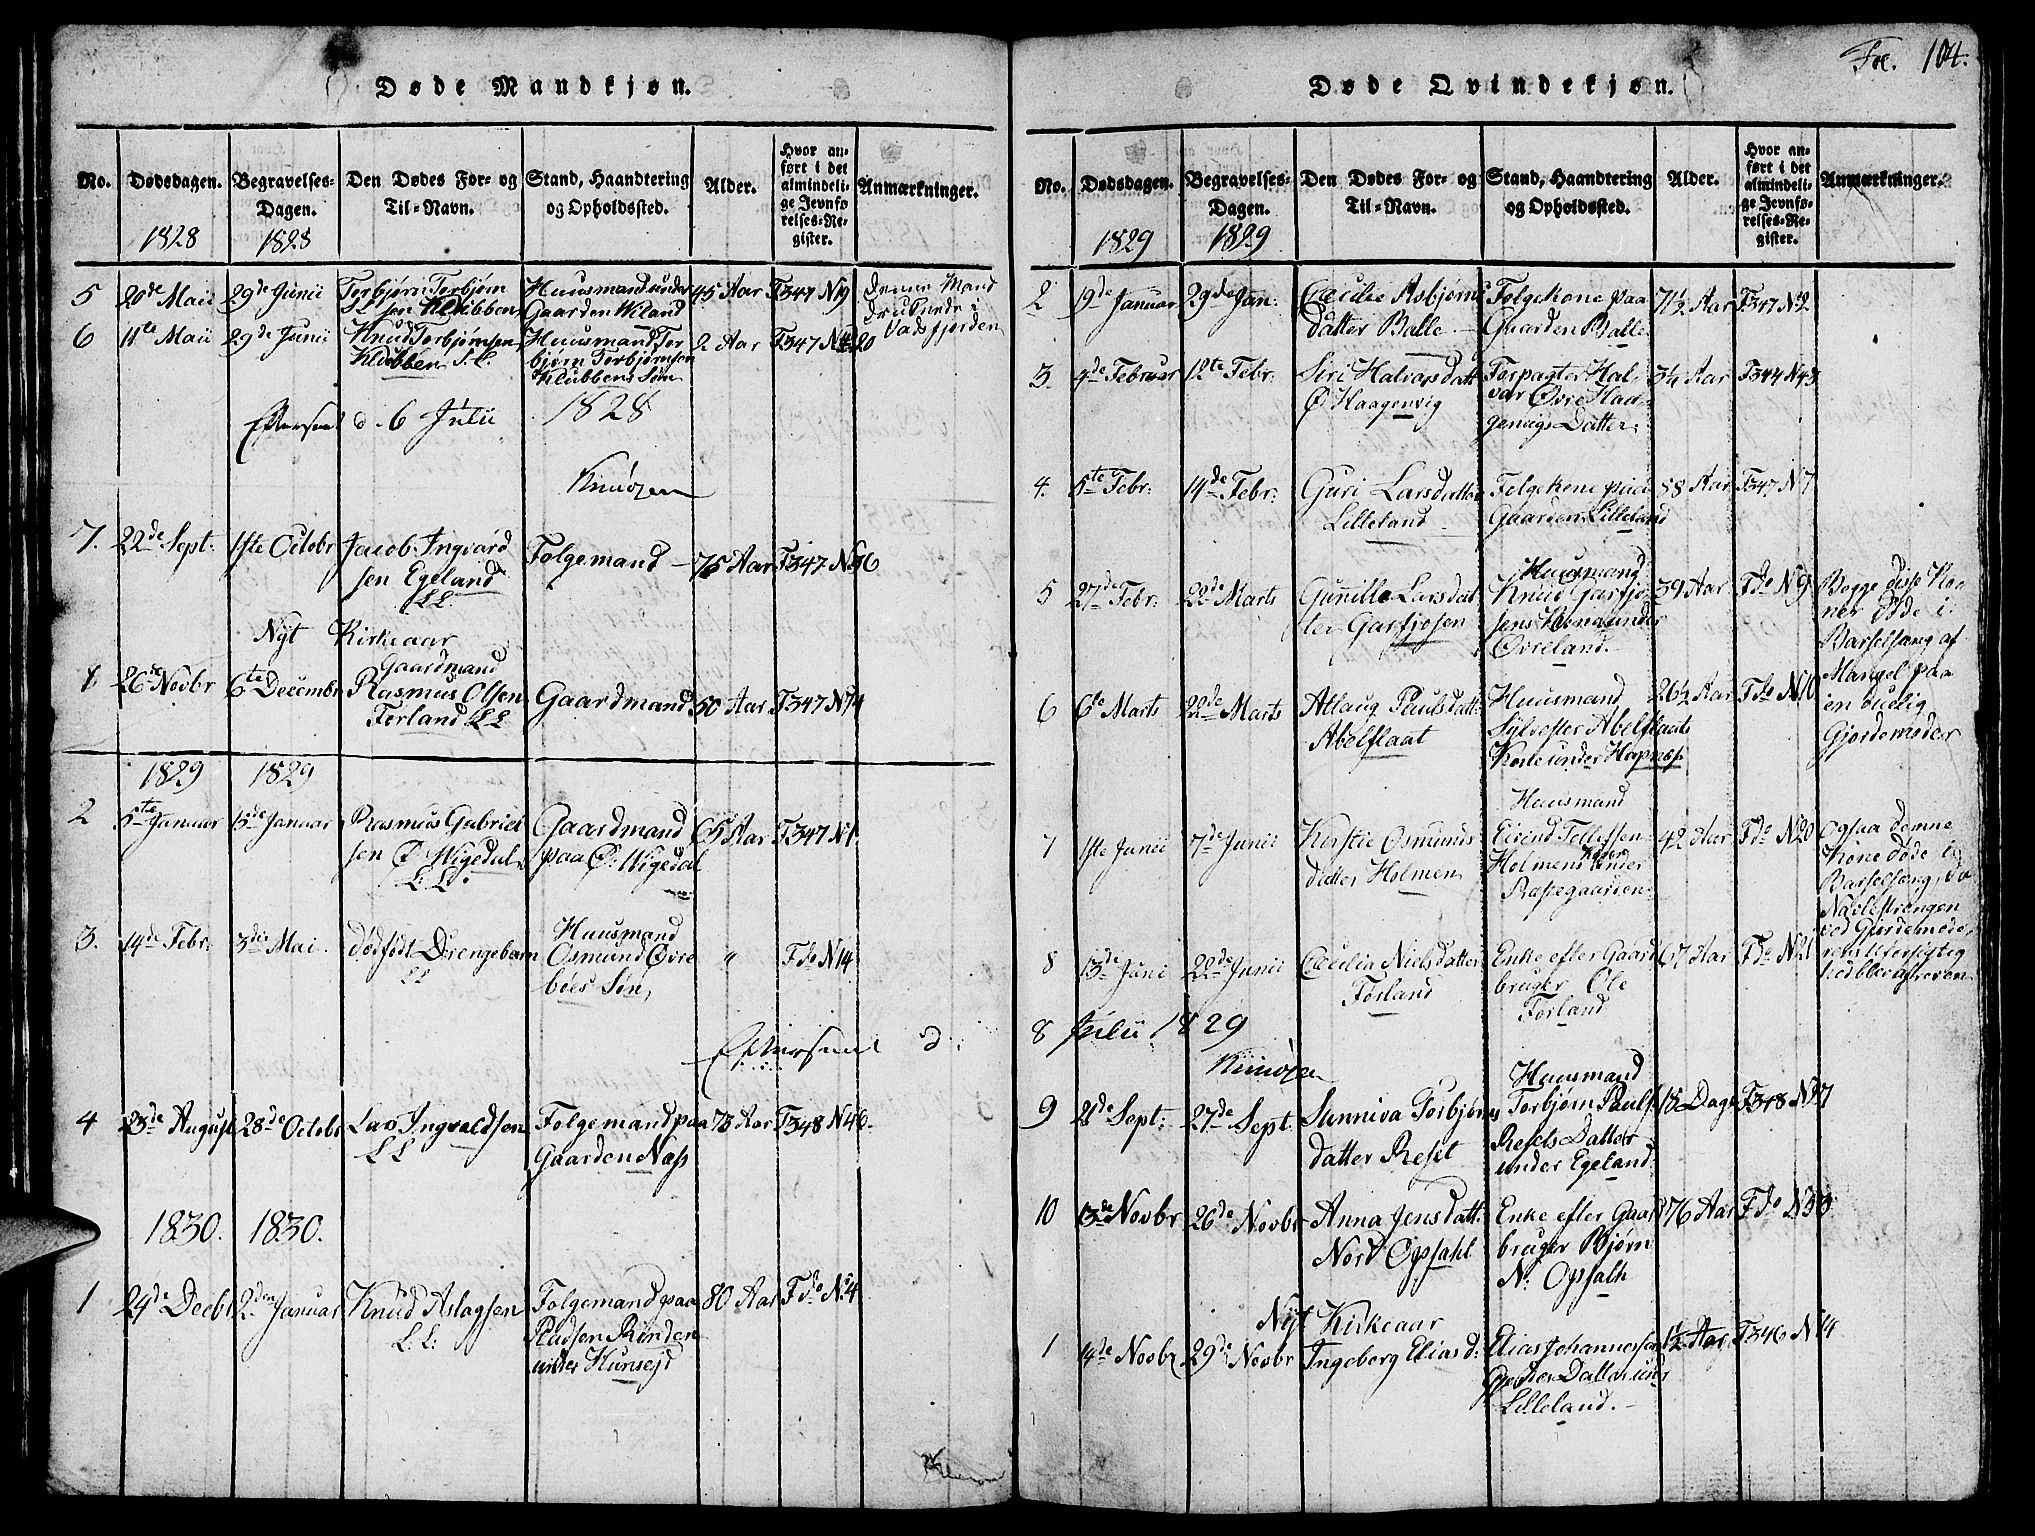 Døde Mandkjøn.
No.
Dødsdagen.
1828
Begravelses-
Dagen.
1828
Den Dødes For- og
Til-Navn.
Stand, Haandtering
og Opholdssted.
Alder.
Hvor an-
ført i det
almindeli-
ge Jevnfø-
relses-Re-
gister.
Anmærkninger.
5 20de Maii 29de Junii Torbjørn Torbjørn
sen Klubben
Huusmand under
Gaarden Wiland
45 Aar F347 N19
denne Mand
druknede i
Vadsfjorden
6 11te Maii 29de Junii Knud Torbjørnsen
Klubben L.L.
Huusmand Tor
bjørn Torbjørnsen
Klubbens Søn
2 Aar F347 N20
Efterseet d. 6 Julii 1828
7. 22de Sept. 1ste Octobr Jacob Ingvard
sen Egeland
LL.
Folgemand 75 Aar F347 N36
Nyt Kirkeaar
1 26de Novbr 6te Decembr Gaardmand
Rasmus Olsen
Førland LL
Gaardmand 50 Aar F347 N74
1829 1829
2 5te Januar 15de Januar Rasmus Gabriel
sen Ø. Wigedal
LL.
Gaardmand
paa Ø. Wigedal
65 Aar F347 N1
3. 14de Febr. 3die Mai. dødfødt Drengebarn
LL
Huusmand
Osmund Øvre
bøes Søn,
" F do N14
Efterseet d.
4 23de August 28de Octobr Lars Ingvaldsen
LL
Folgemand paa
Gaarden Næss
73 Aar F348 N46.
1830. 1830.
1 24de Decbr 2den Januar Knud Aslagsen
L.L.
Folgemand paa
Pladsen Rinden
under Hunsejd
80 Aar F do N4
Fol. 104.
Døde Qvindekjøn.
No.
Dødsdagen.
1829
Begravelses-
Dagen.
1829
Den Dødes For- og
Til-Navn.
Stand, Haandtering
og Opholdssted.
Alder.
Hvor an-
ført i det
almindeli-
ge Jevnfø-
relses-Re-
gister.
Anmærkninger.
2 19de Januar 29de Jan: Cecilie Asbjørns
datter Balle
Folgekone paa
Gaarden Balle
71½ Aar F347 N2
3. 4de Februar 12te Febr. Siri Halvorsdatt
Ø Haagenvig
Forpagter Hal-
vor Øvre Haa-
genvigs Datter.
3¼ Aar F344 N43
4. 5te Febr: 14de Febr: Guri Larsdatter
Lilleland
Folgekone paa
Gaarden Lilleland
88 Aar F347 N7
5 27de Febr: 22de Marts Gunille Larsdat
ter Garfjosen
Huusmand
Knud Garfjo-
sens Kone under
Øvreland.
39 Aar F do N9
Begge disse Ko
ner døde i
Barselsæng af
Mangel paa
en duelig
Gjordemoder
6 6te Marts 22de Marts Atlaug Paulsdatt:
Abelflaat
Huusmand
Sylvester Abelflaats
Kone under Hapness
26½ Aar F do N10
7 1ste Junii 7de Junii Kirstie Osmunds
datter Holmen
Huusmand
Eivind Tollefsen
Holmens Kone under
Prestegaarden
42 Aar F do N20
Ogsaa denne
Kone døde i
Barselsæng, da
Navlestrengen
ved Gjordemode
rens Uforsigtig
hed blev afreven
8 13de Juni 22de Junii Cecilia Nielsdatter
Førland
Enke efter Gaard
bruger Ole
Førland
67 Aar F do N21
8 Julii 1829
9 21de Sept: 27de Sept. Sunniva Torbjørns
datter Reset
Huusmand
Torbjørn Pauls.
Resets Datter
under Egeland
18 Dage F348 N27
10 13de Novbr 26de Novbr Anna Jensdatt:
Nord Opsahl
Enke efter Gaar
bruger Bjørn
N. Opsalh
76 Aar F do N33
Nyt Kirkeaar
1 14de Novbr 29de Novbr Ingeborg Elias d:
Elias Johannessen
Datter und
Lilleland.
1½ Aar F346 N14